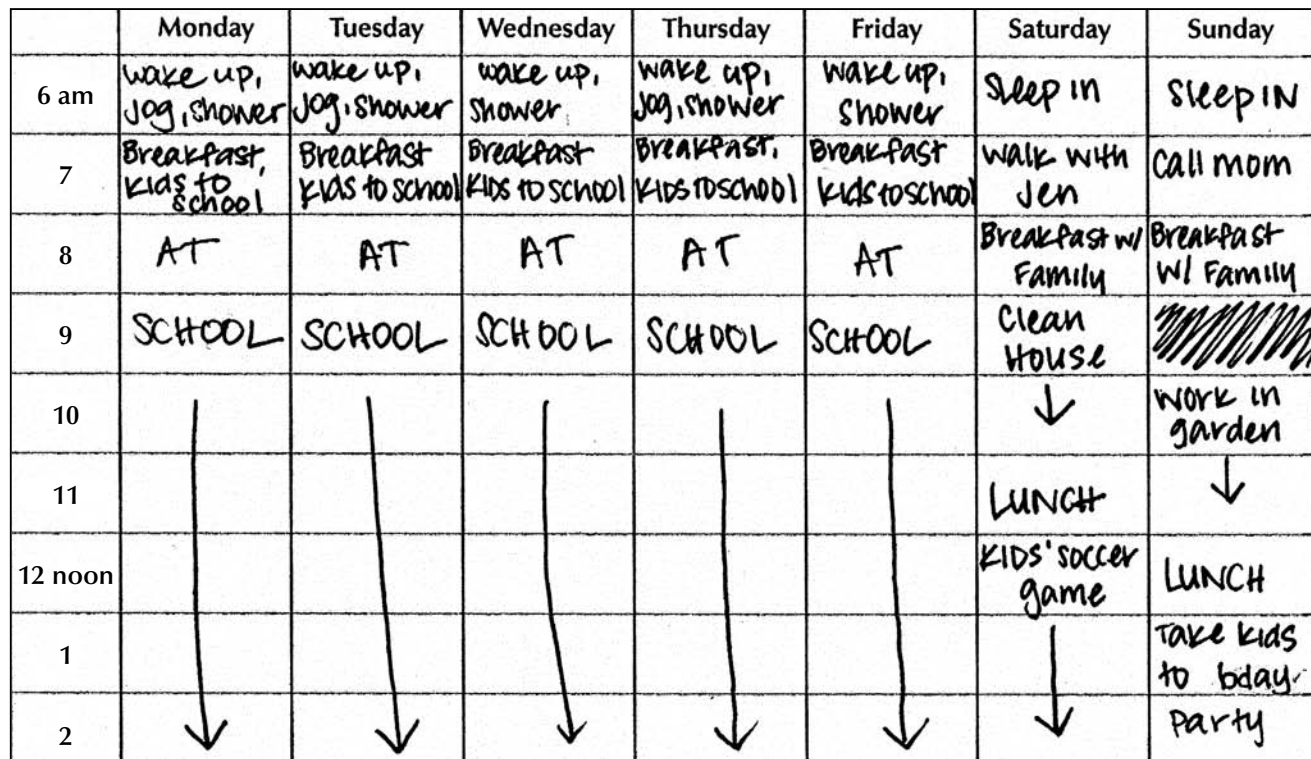 Monday Tuesday Wednesday Thursday Friday Saturday Sunday
6 am
wake up,
Jog, shower
wake up,
Jog, shower
wake up,
shower
wake up,
Jog, shower
wake up,
shower
Sleep in
sleep IN
7
Breakfast,
kids to
school
Breakfast
kids to school
Breakfast
kids to school
Breakfast,
kids to school
Breakfast
kids to school
walk with
Jen
call mom
8
AT
AT
AT
AT
AT
Breakfast w/
Family
Breakfast
w/ Family
9
SCHOOL
SCHOOL
SCHOOL
SCHOOL
SCHOOL
Clean
House
10
work in
garden
11
LUNCH
12 noon
KIDS' soccer
game
LUNCH
1
Take kids
to bday
2
Party